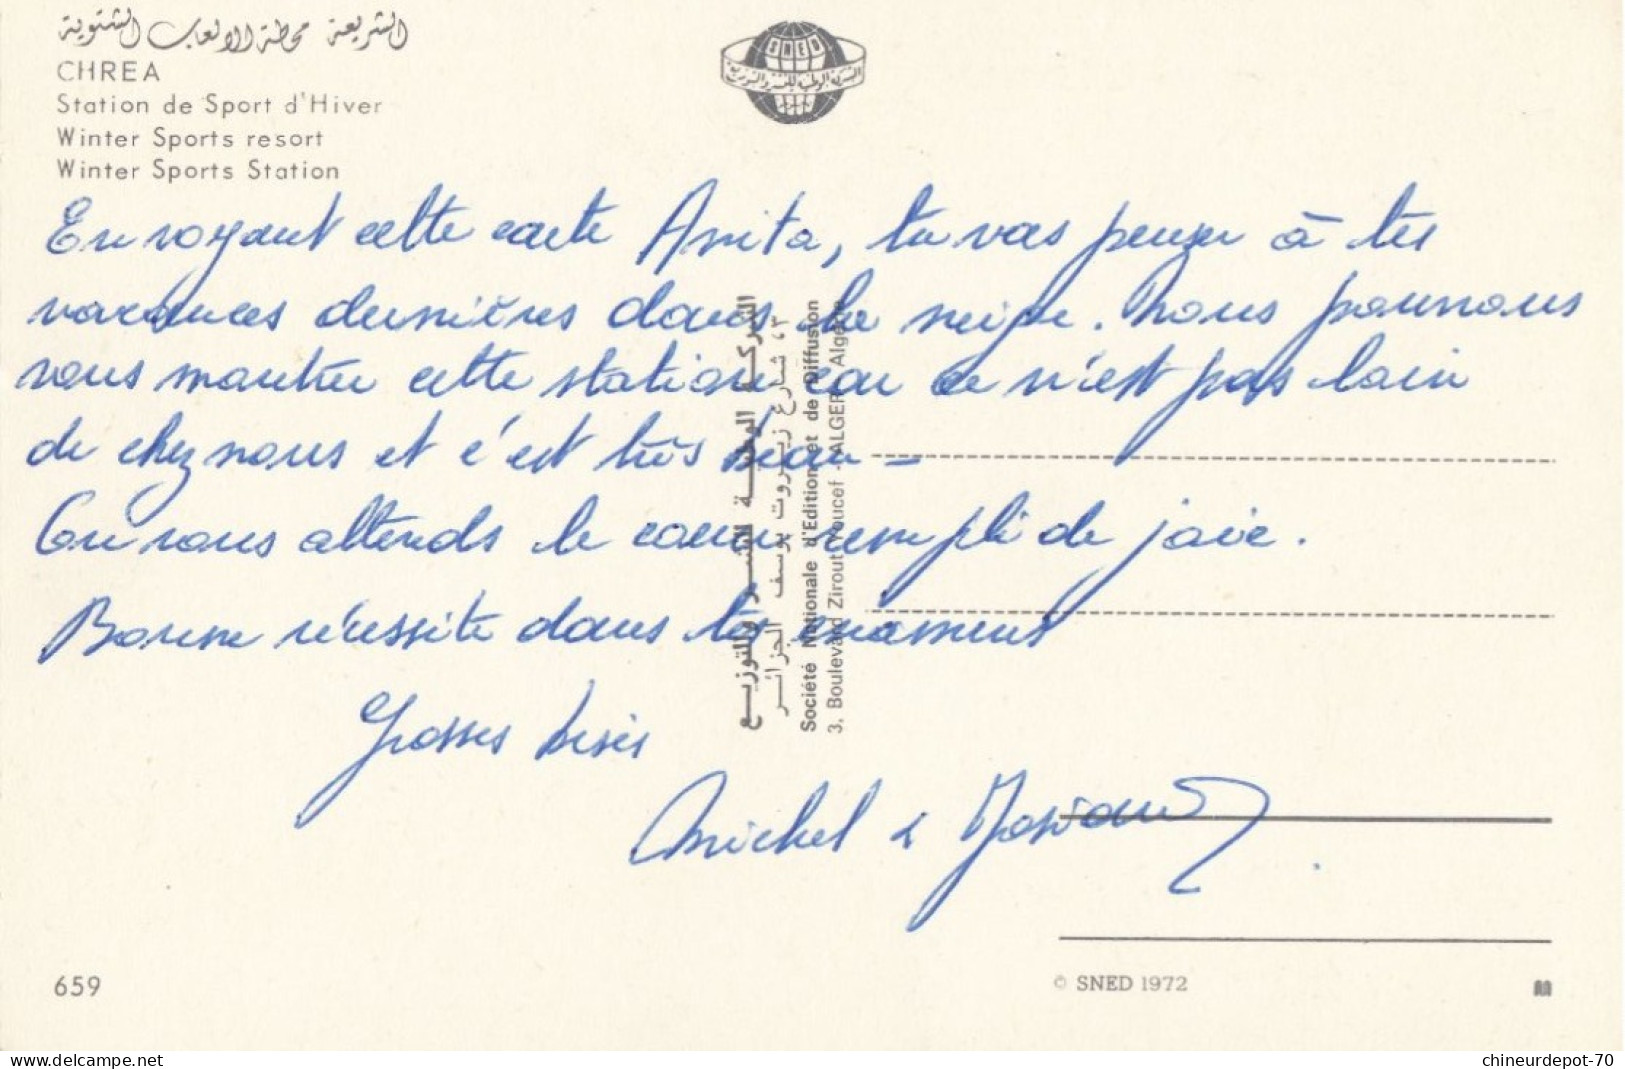 الشريعة محطة الالعاب الشتوية
CHREA
Station de Sport d'Hiver
Winter Sports resort
Winter Sports Station
SNED
الشركة الوطنية للنشر والتوزيع
En voyant cette carte Anita, tu vas penser à tes
vacances dernières dans la neige. Nous pourrons
vous montrer cette station car ce n'est pas loin
de chez nous et c'est très beau -
On vous attends le coeur rempli de joie.
Bonne réussite dans tes examens
Grosses bises
Michel &
الشركة الوطنية للنشر والتوزيع
٣، شارع زيروت يوسف الجزائر
Société Nationale d'Edition et de Diffusion
3, Boulevard Zirout Youcef - ALGER - Algérie
659
© SNED 1972
www.delcampe.net
chineurdepot-70